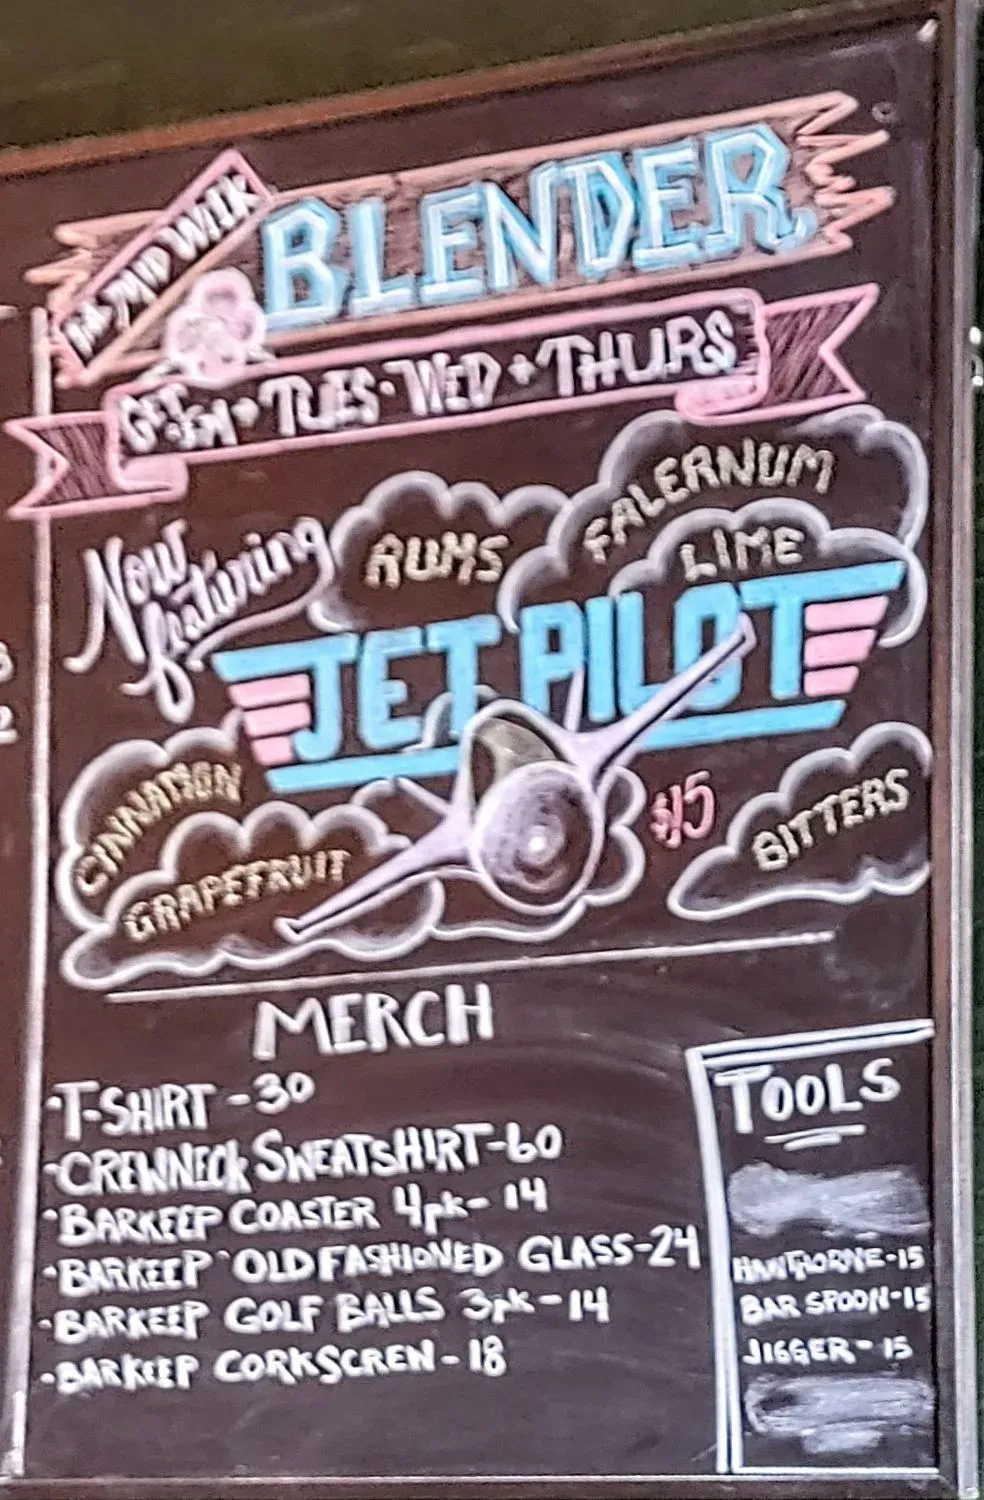 MID WEEK
BLENDER
GET EM • TUES • WED • THURS
Now
featuring
RUMS
FALERNUM
LIME
JET PILOT
CINNATION
GRAPEFRUIT
$15
BITTERS
MERCH
• T-SHIRT - 30
• CREWNECK SWEATSHIRT - 60
• BARKEEP COASTER 4pk - 14
• BARKEEP OLD FASHIONED GLASS - 24
• BARKEEP GOLF BALLS 3pk - 14
• BARKEEP CORKSCREW - 18
TOOLS
HAWTHORNE - 15
BAR SPOON - 15
JIGGER - 15